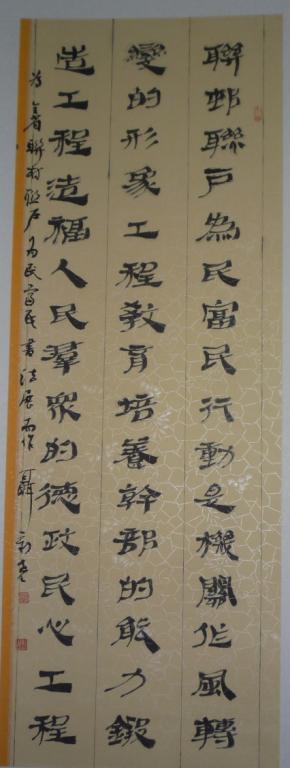 聯邨聯戶為民富民行動是機關作風轉
變的形象工程教育培養幹部的能力鍛
造工程造福人民羣眾的德政民心工程
為省聯村聯戶為民富民書法展而作